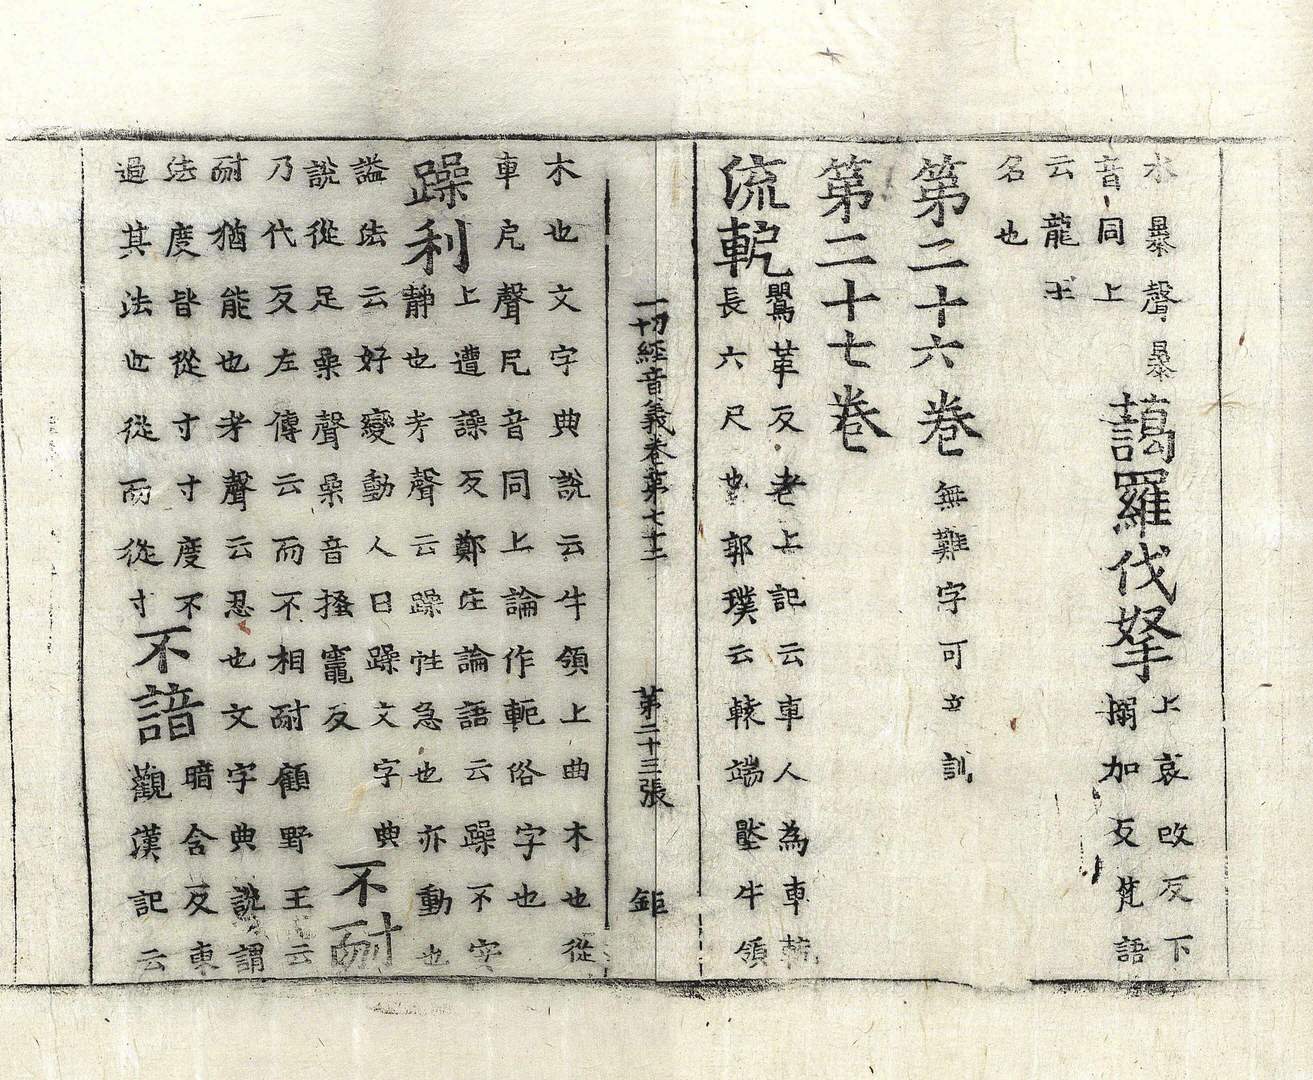 水暴聲暴
音同上
藹羅伐拏
上哀改反下
搦加反梵語
云龍王
名也
第二十六卷
無難字可立訓
第二十七卷
流軶
鸎革反考上記云車人為車軶
長六尺也郭璞云轅端壓牛領
木也文字典說云牛領上曲木也從
車戹聲戹音同上論作軛俗字也
躁利
上遭譟反鄭注論語云躁不安
静也考聲云躁性急也亦動也
謚法云好變動人曰躁文字典
說從足喿聲喿音搔竈反
不耐
乃代反左傳云而不相耐顧野王云
耐猶能也考聲云忍也文字典說謂
法度皆從寸寸度不
過其法也從而從寸
不諳
暗含反東
觀漢記云
一切經音義卷第七十二
第二十三張
鉅